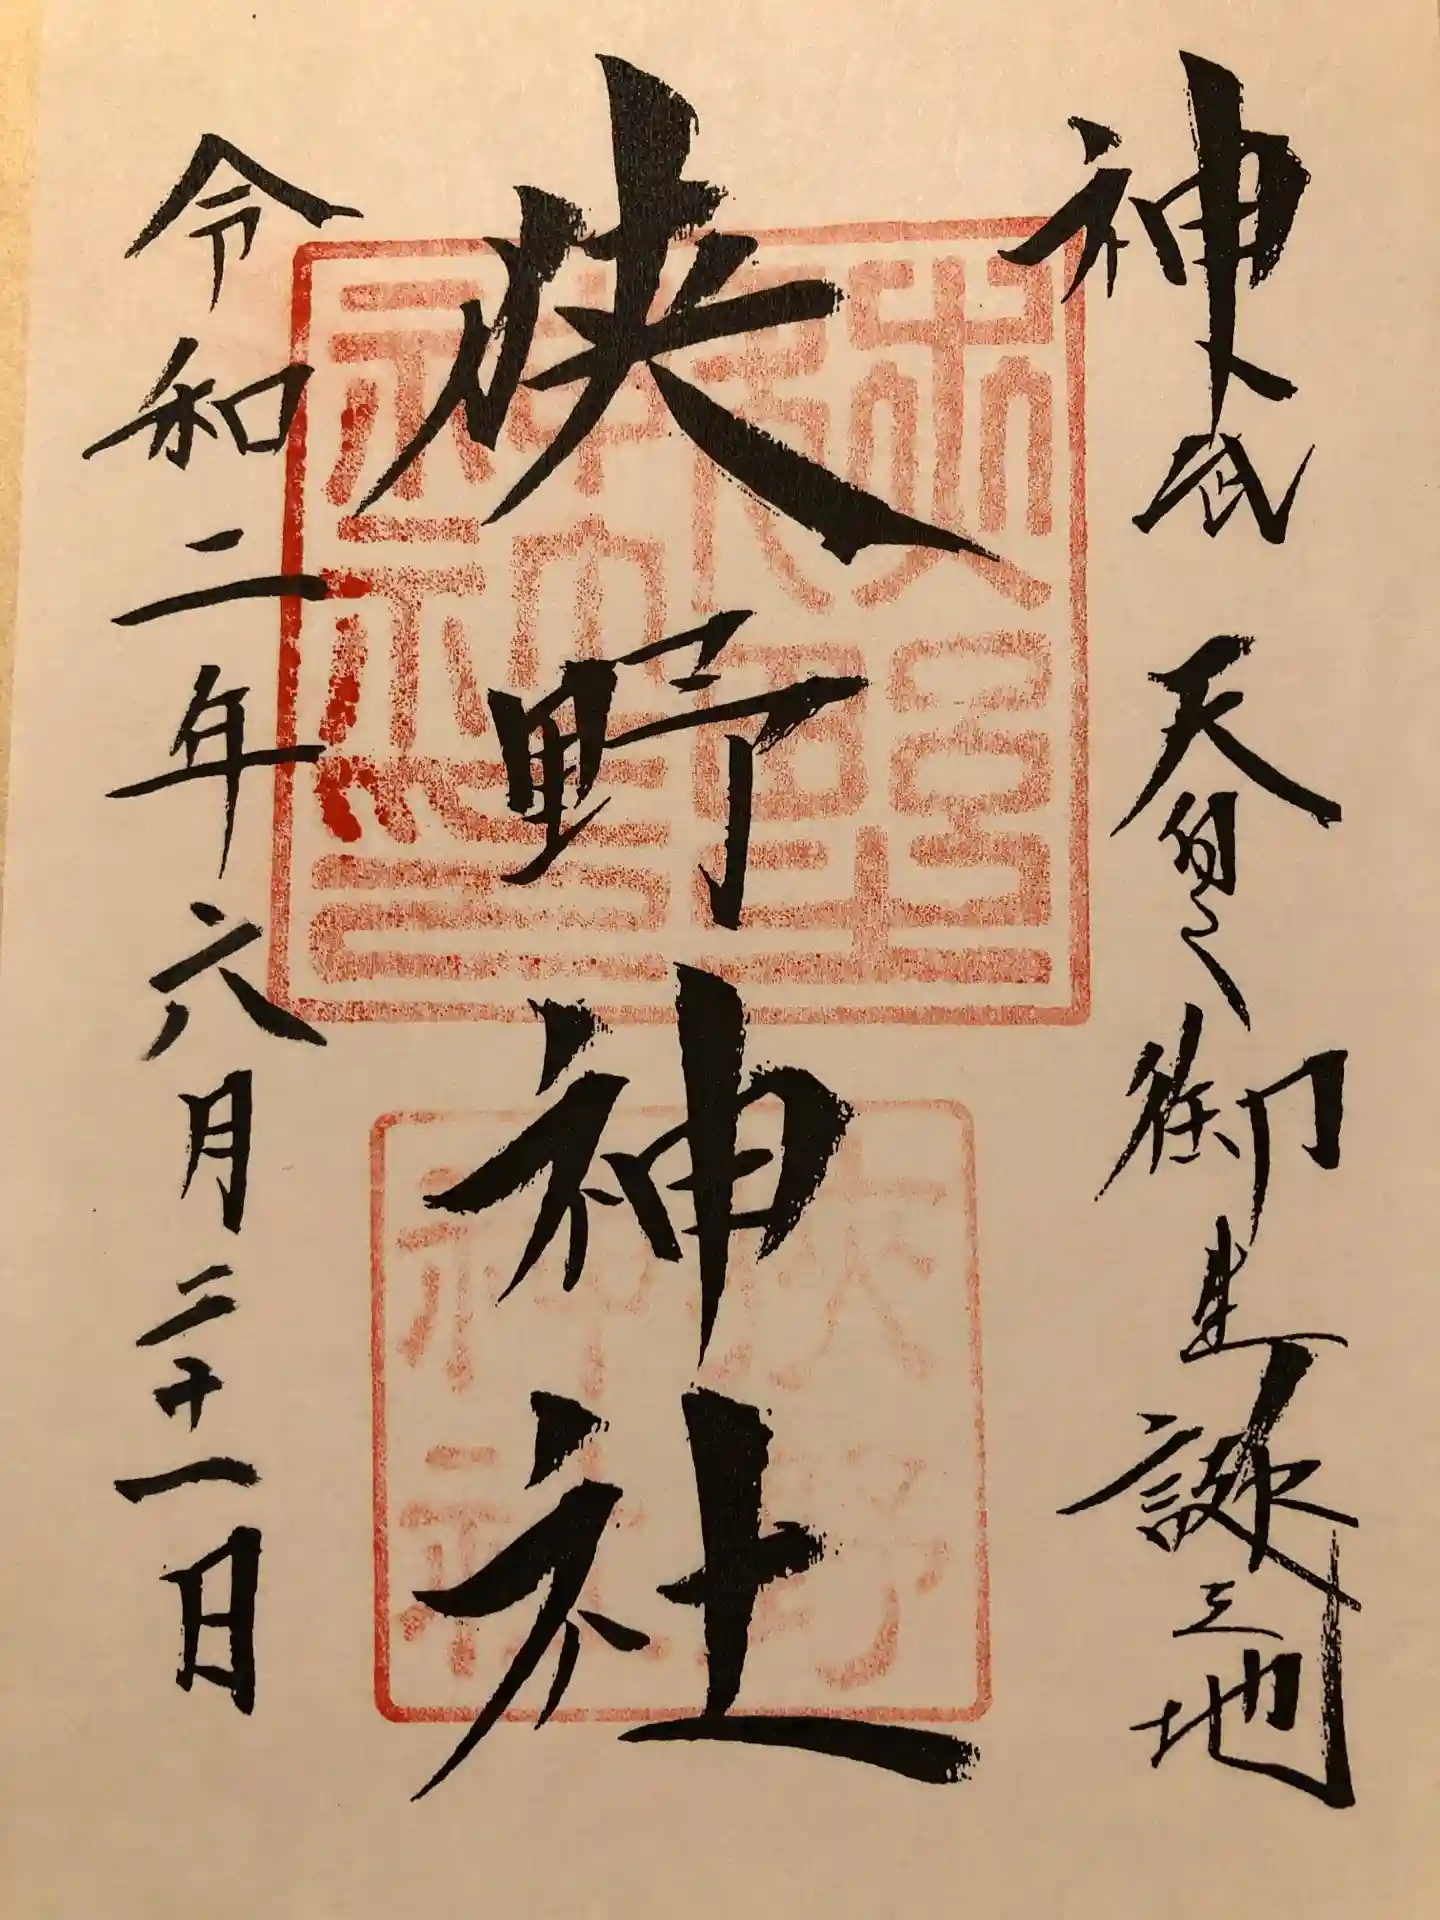 神武天皇御生誕之地
狭野神社
令和二年六月二十一日
狭野神社